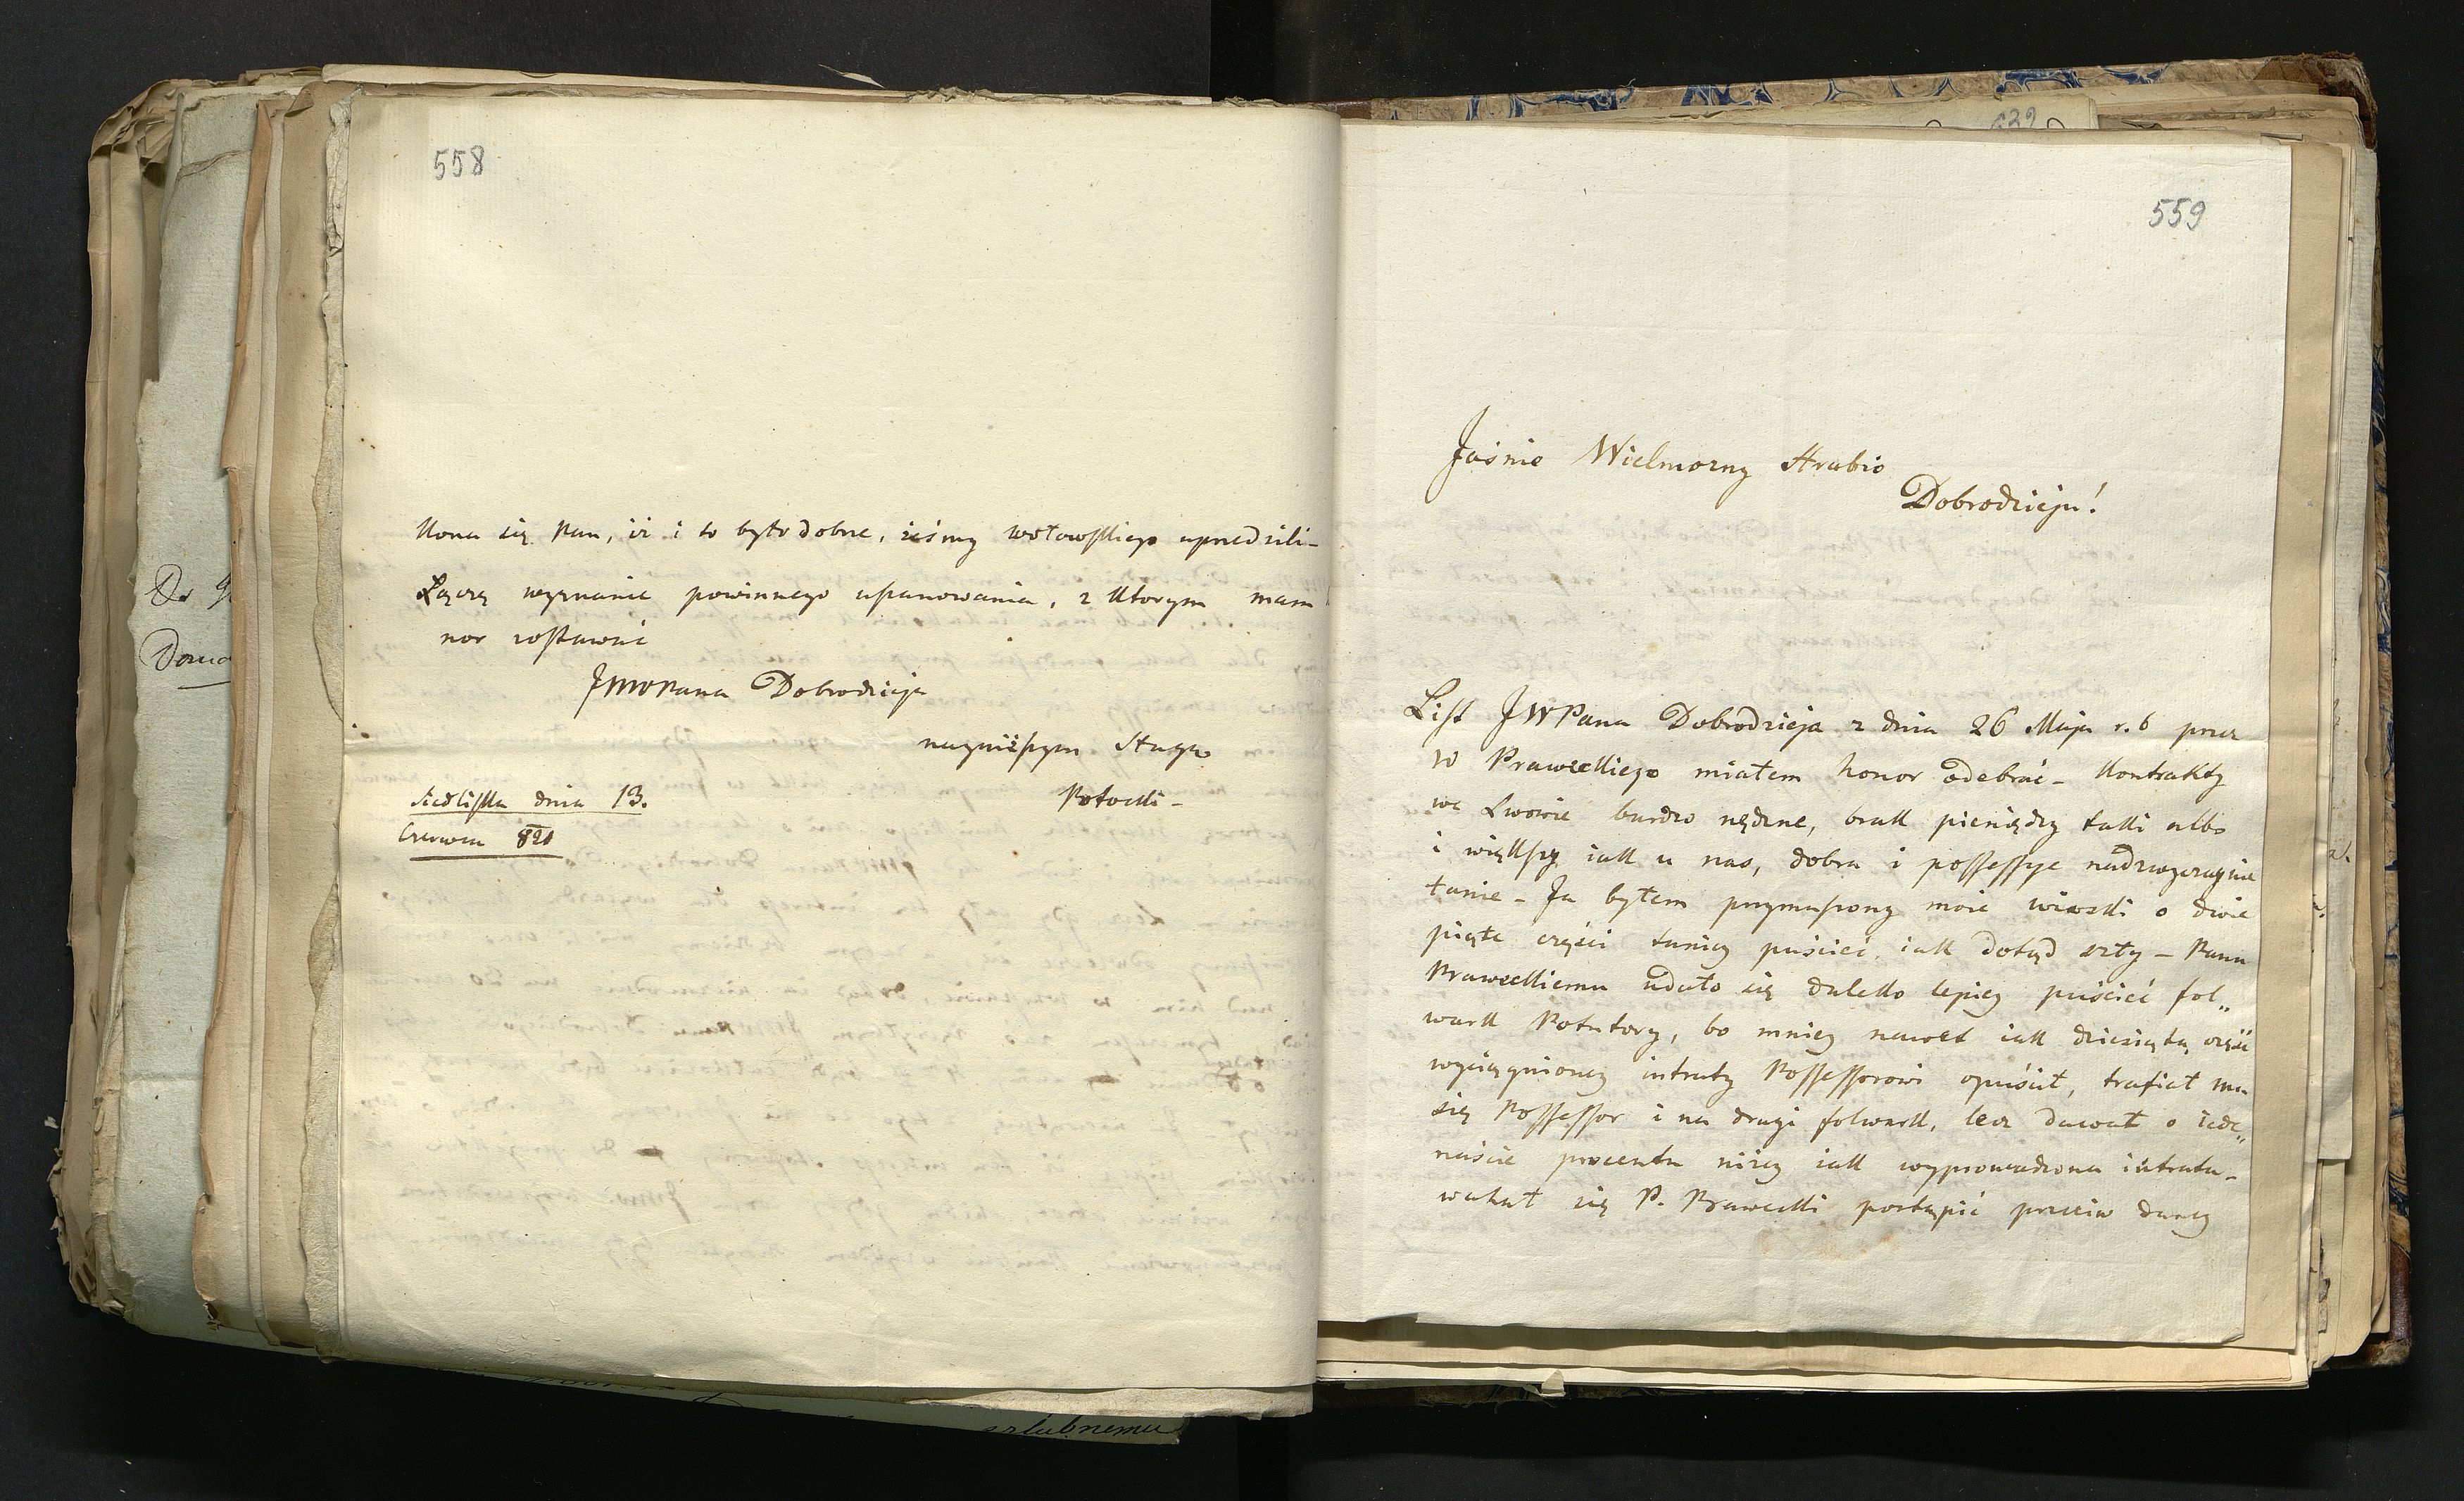 558
kona się Pan, iż i to było dobrze, iżeśmy Wołowskiego uprzedzili –
Łączę wyznanie powinnego uszanowania, z ktorym mam
nor zostawać
JWWPana Dobrodzieja
nayniższym Sługą
Potocki –
Siedliska dnia 13.
Czerwca 821
559
Jaśnie Wielmożny Hrabio
Dobrodzieju!
List JWPana Dobrodzieja z dnia 26 Maja r. b przez
W Praweckiego miałem honor odebrać – Kontrakty
we Lwowie bardzo nędzne, brak pieniędzy taki albo
i większy iak u nas, dobra i possessye nadzwyczaynie
tanie – Ja byłem przymuszony moie wioski o dwie
piąte części taniey puścić, iak dotąd szły – Panu
Praweckiemu udało się daleko lepiey puścić fol„
wark Potutory, bo mniey nawet iak dziesiątą część
wyciągnioney intraty Possessorowi opuścił, trafiał mu
się Possessor i na drugi folwark, lecz dawał o iede„
naście procentu niżey iak wyprowadzona intrata –
wahał się P. Prawecki postąpić przeciw daney
Do
szlubnemu